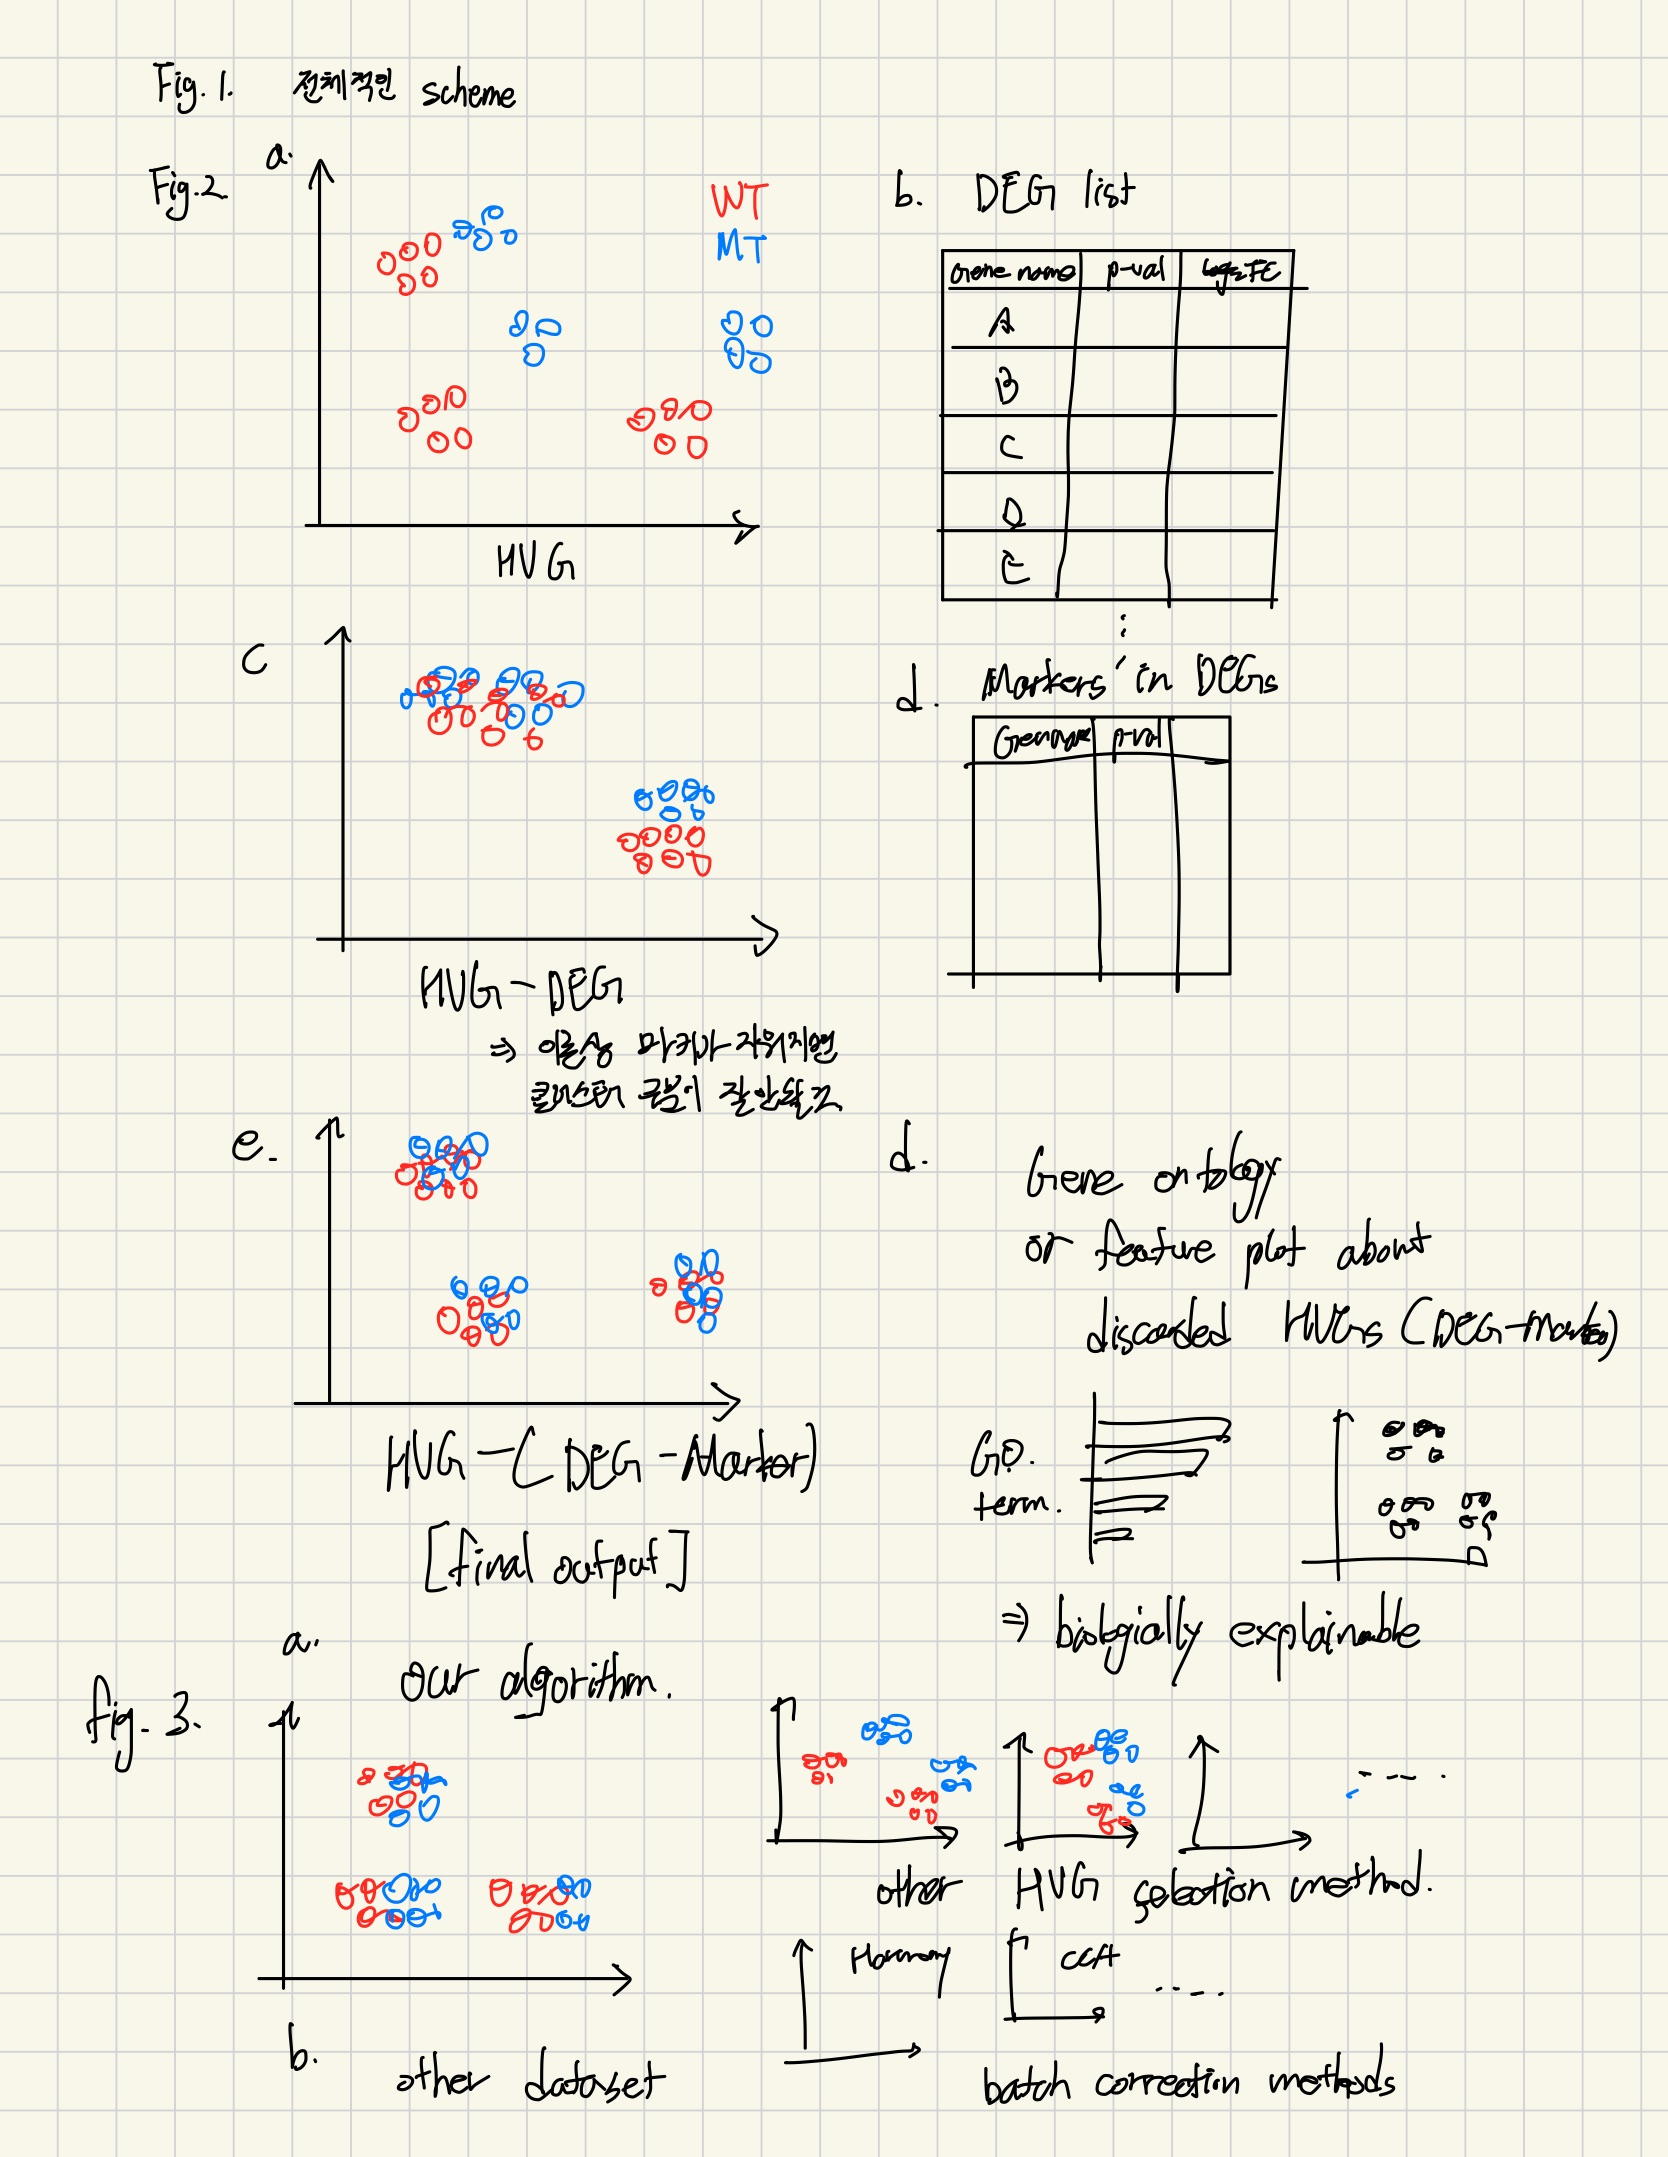 Fig. 1. 전체적인 scheme
Fig. 2
a.
WT
MT
HVG
b. DEG list
Gene name p-val log2FC
A
B
C
D
E
c
HVG - DEG
⇒ 이론상 마커가 지워지면
클러스터 구분이 잘 안될
d. Markers in DEGs
p-val
e.
HVG - ( DEG - Marker)
[final output]
d. Gene ontology
or feature plot about
discarded HVGs (DEG-marker)
GO.
term.
⇒ biologially explainable
fig. 3.
a. our algorithm.
other HVG selection method.
Harmony CCA
batch correction methods
b. other dataset